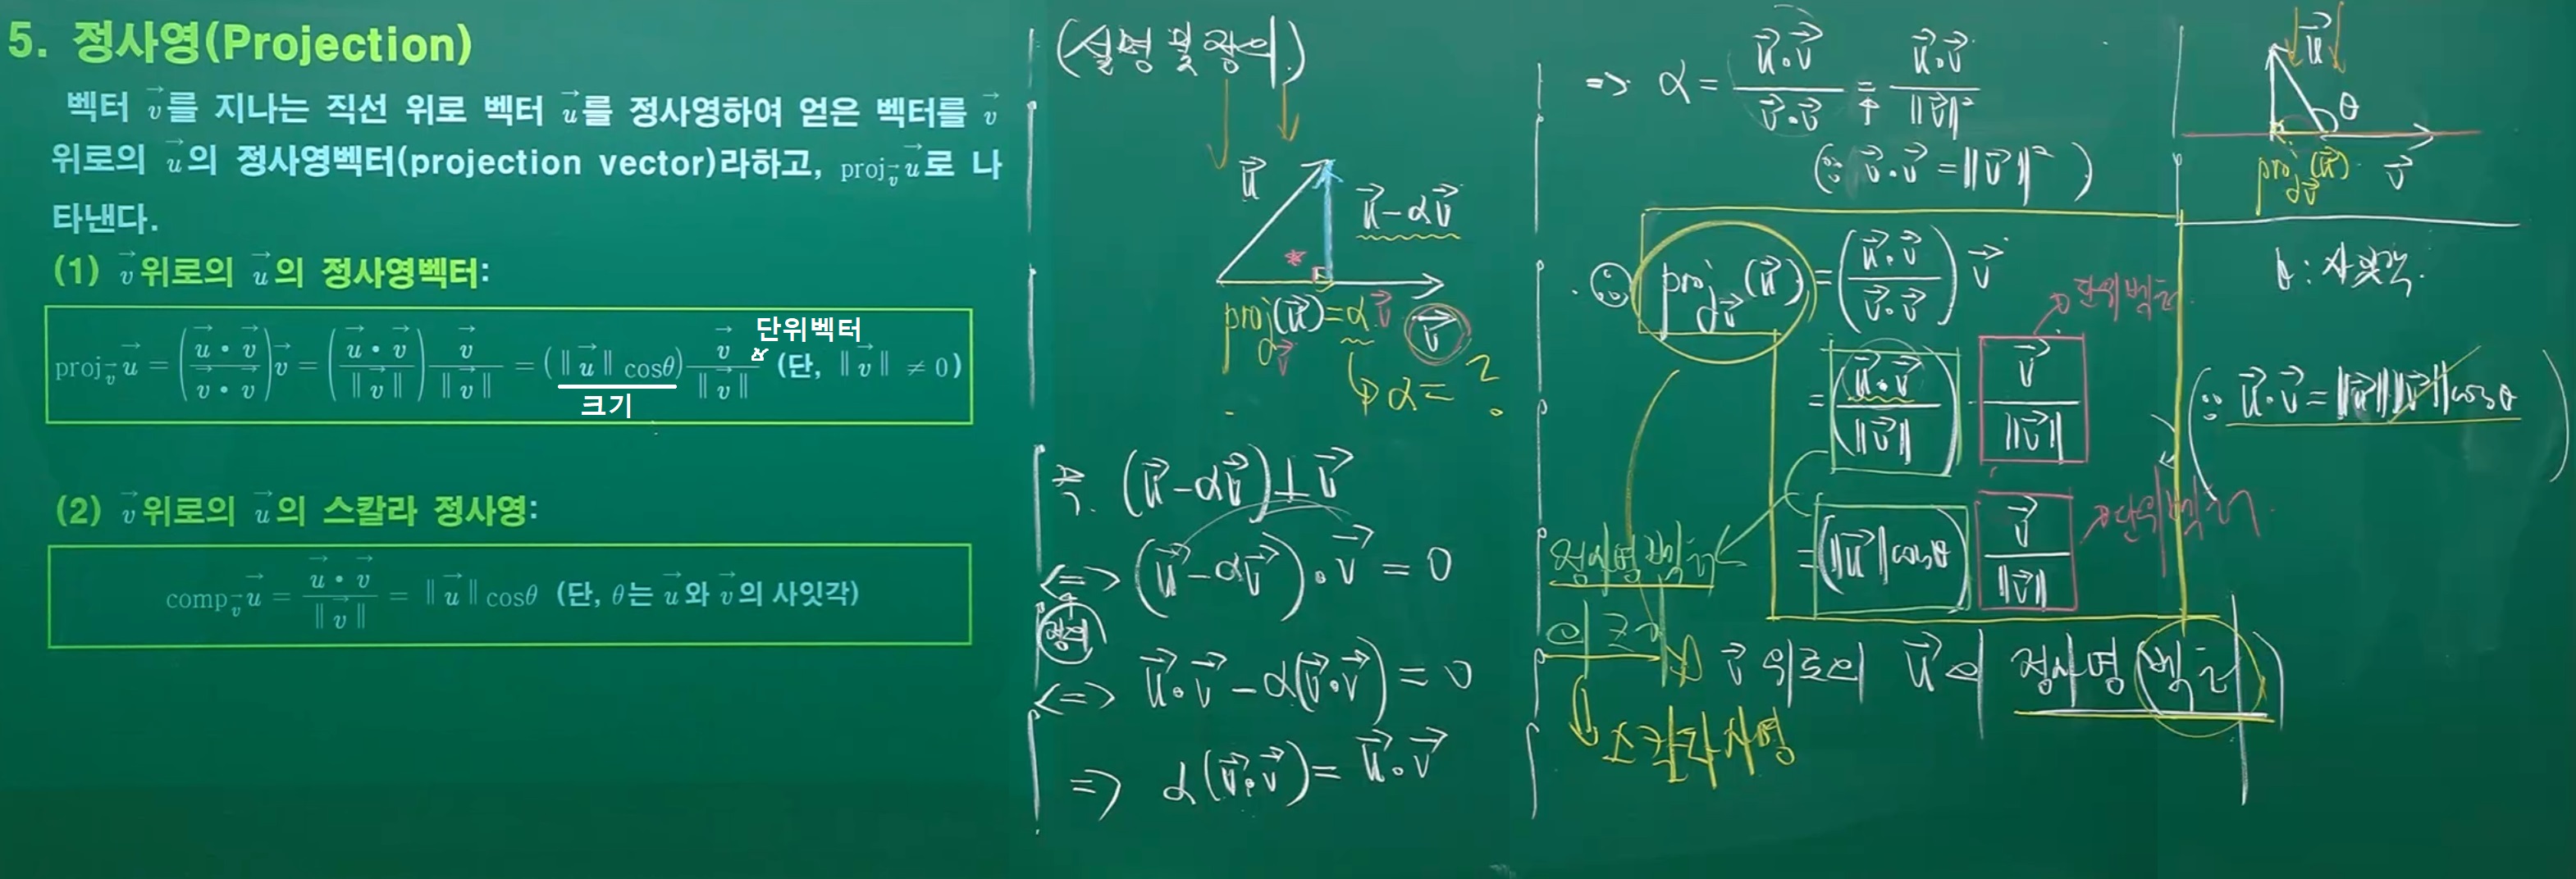 5. 정사영(Projection)
벡터 v⃗를 지나는 직선 위로 벡터 u⃗를 정사영하여 얻은 벡터를 v⃗
위로의 u⃗의 정사영벡터(projection vector)라하고, proj_v⃗ u⃗로 나
타낸다.
(1) v⃗위로의 u⃗의 정사영벡터:
proj_v⃗ u⃗ = (u⃗·v⃗ / v⃗·v⃗)v⃗ = (u⃗·v⃗ / ‖v⃗‖) v⃗/‖v⃗‖ = (‖u⃗‖ cosθ) v⃗/‖v⃗‖ (단, ‖v⃗‖ ≠ 0)
단위벡터
크기
(2) v⃗위로의 u⃗의 스칼라 정사영:
comp_v⃗ u⃗ = u⃗·v⃗ / ‖v⃗‖ = ‖u⃗‖ cosθ (단, θ는 u⃗와 v⃗의 사잇각)
(설명 및 정의)
u⃗
u⃗-αv⃗
*
proj_v⃗(u⃗)=αv⃗
v⃗
α=?
*. (u⃗-αv⃗)⊥v⃗
<=> (u⃗-αv⃗)·v⃗=0
정의
<=> u⃗·v⃗-α(v⃗·v⃗)=0
=> α(v⃗·v⃗)=u⃗·v⃗
=> α = u⃗·v⃗ / v⃗·v⃗ = u⃗·v⃗ / ‖v⃗‖²
(∵ v⃗·v⃗=‖v⃗‖²)
∴ proj_v⃗(u⃗)=(u⃗·v⃗ / v⃗·v⃗)v⃗
단위벡터
=(u⃗·v⃗ / ‖v⃗‖)·v⃗/‖v⃗‖
=(‖u⃗‖cosθ) v⃗/‖v⃗‖
단위벡터
정사영벡터
의 크기
스칼라사영
v⃗ 위로의 u⃗의 정사영(벡터)
u⃗
θ
proj_v⃗(u⃗)
v⃗
θ: 사잇각.
(∵ u⃗·v⃗=‖u⃗‖‖v⃗‖cosθ)